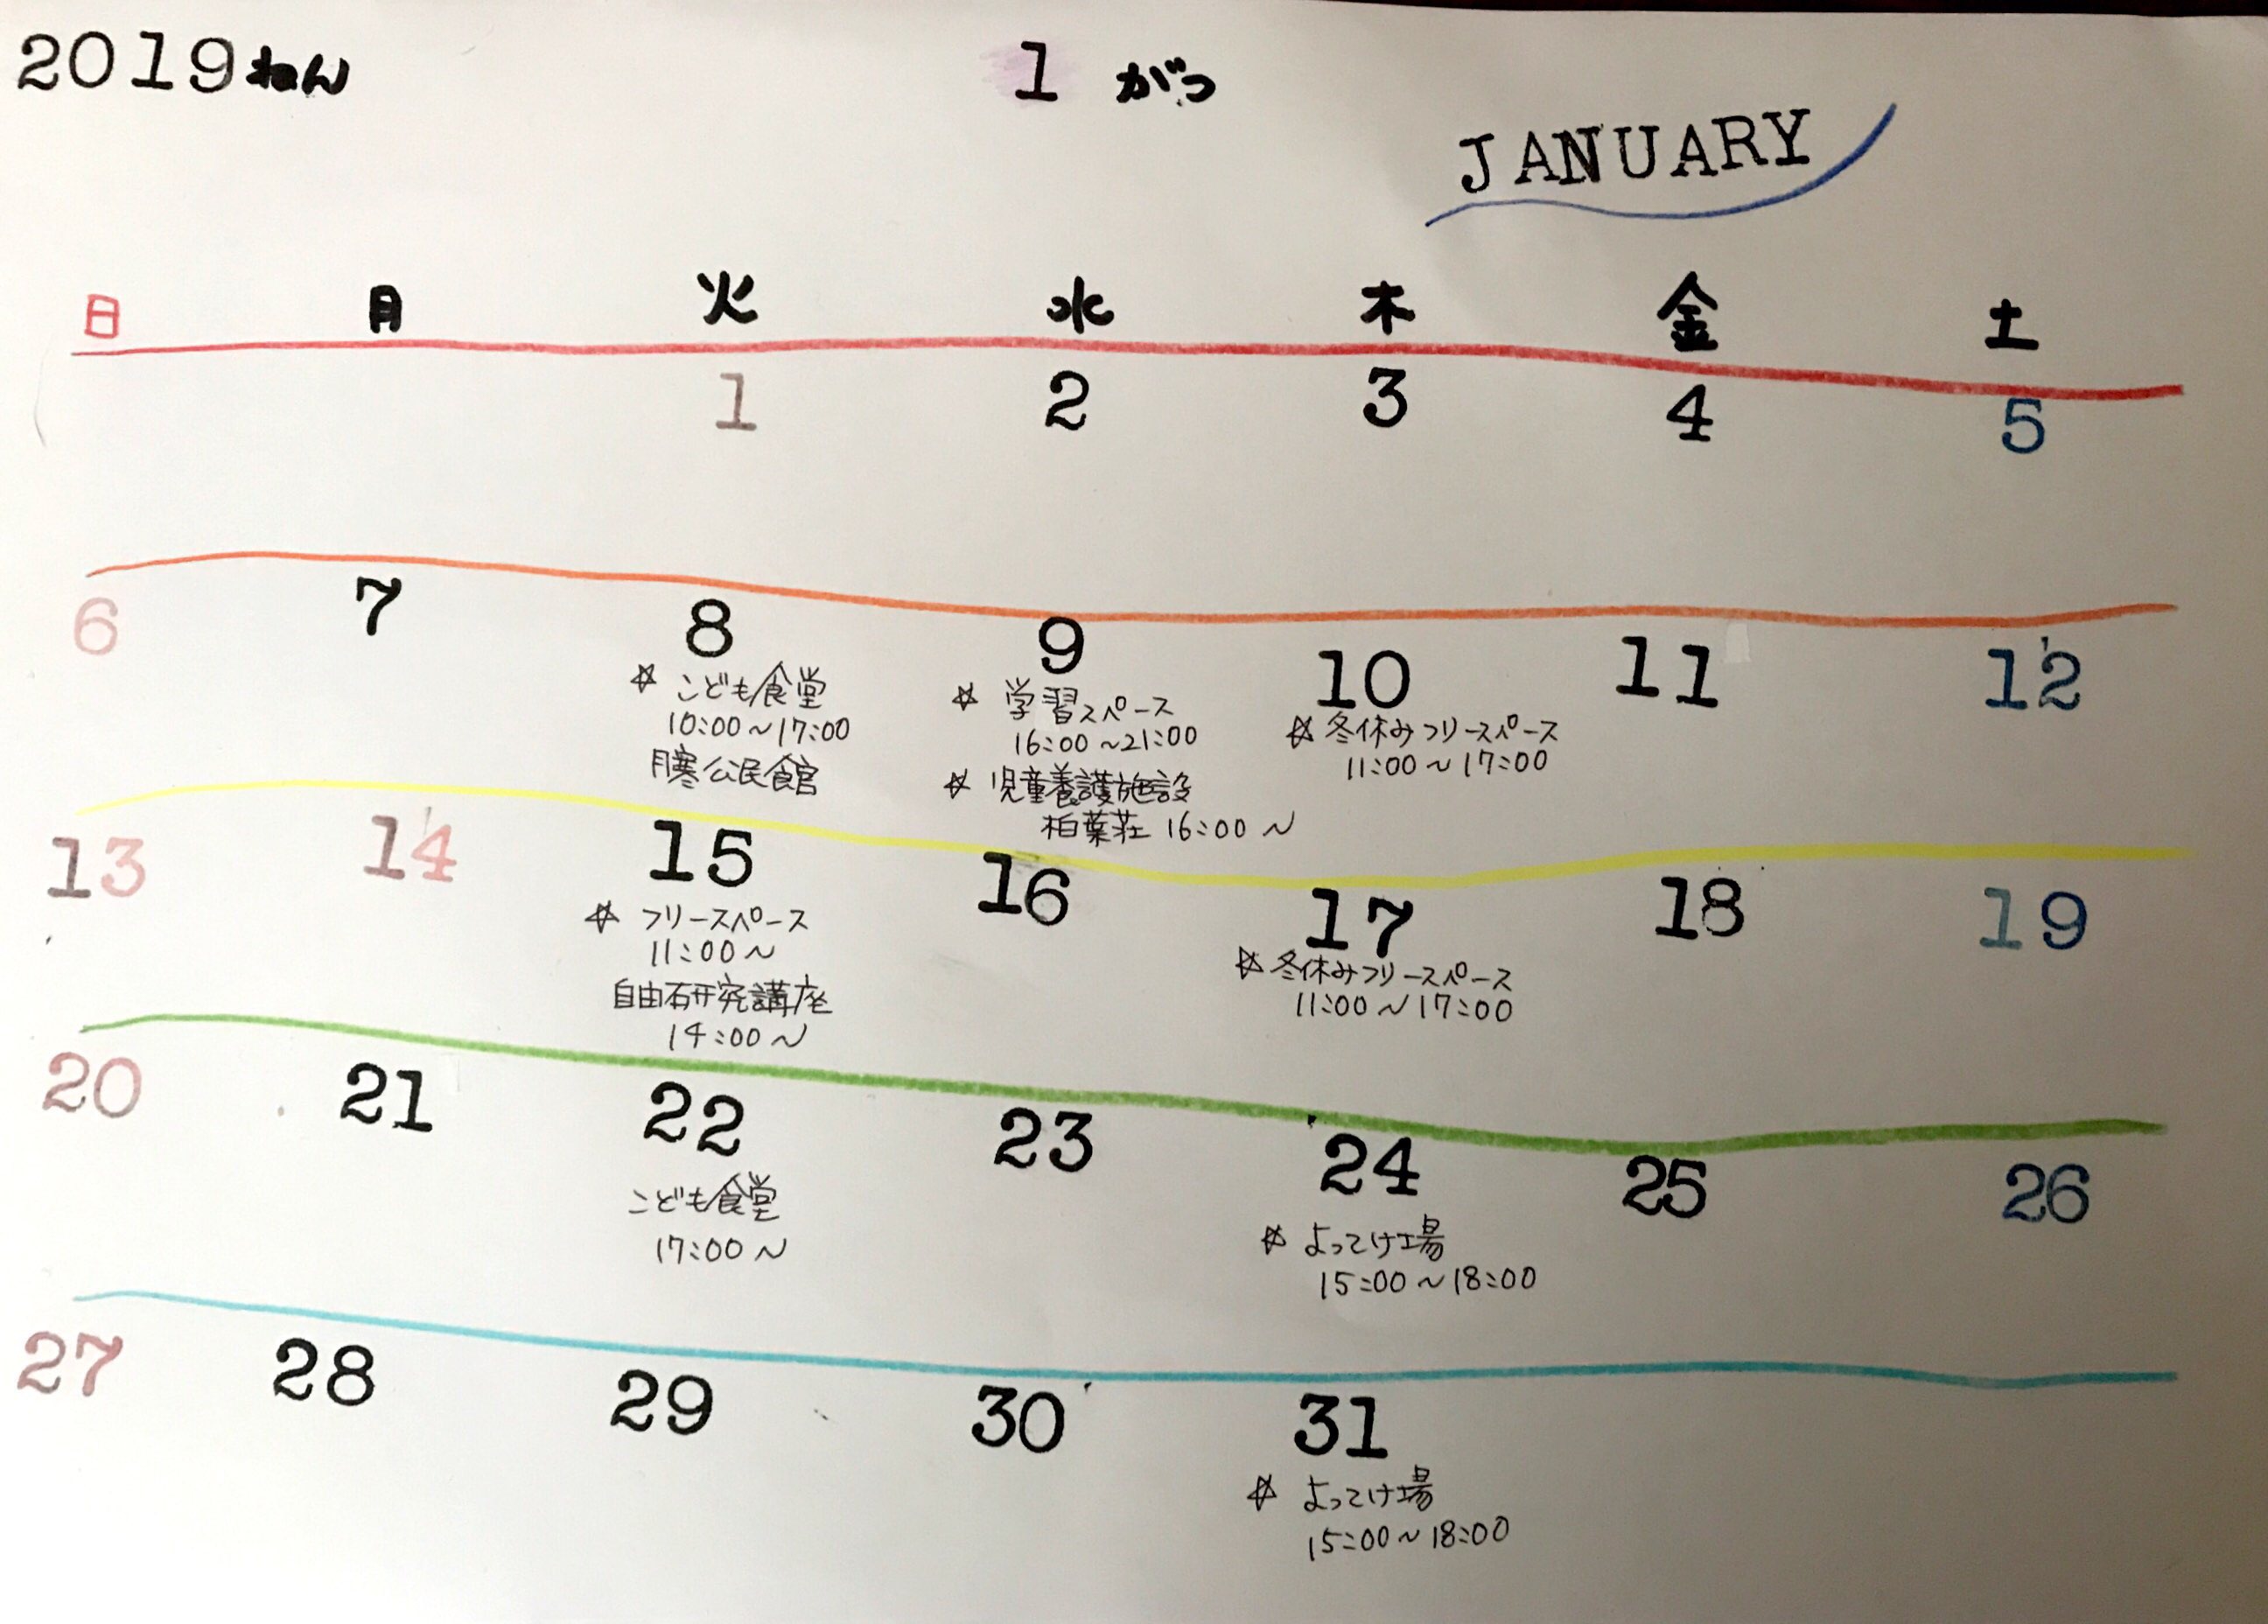 2019ねん
1 がつ
JANUARY
日 月 火 水 木 金 土
1 2 3 4 5
6 7 8 9 10 11 12
☆ こども食堂
10:00～17:00
月寒公民食官
☆ 学習スペース
16:00～21:00
☆ 児童養護施設
柏葉荘 16:00～
☆ 冬休みフリースペース
11:00～17:00
13 14 15 16 17 18 19
☆ フリースペース
11:00～
自由研究講座
14:00～
☆ 冬休みフリースペース
11:00～17:00
20 21 22 23 24 25 26
こども食堂
17:00～
☆ よってけ場
15:00～18:00
27 28 29 30 31
☆ よってけ場
15:00～18:00